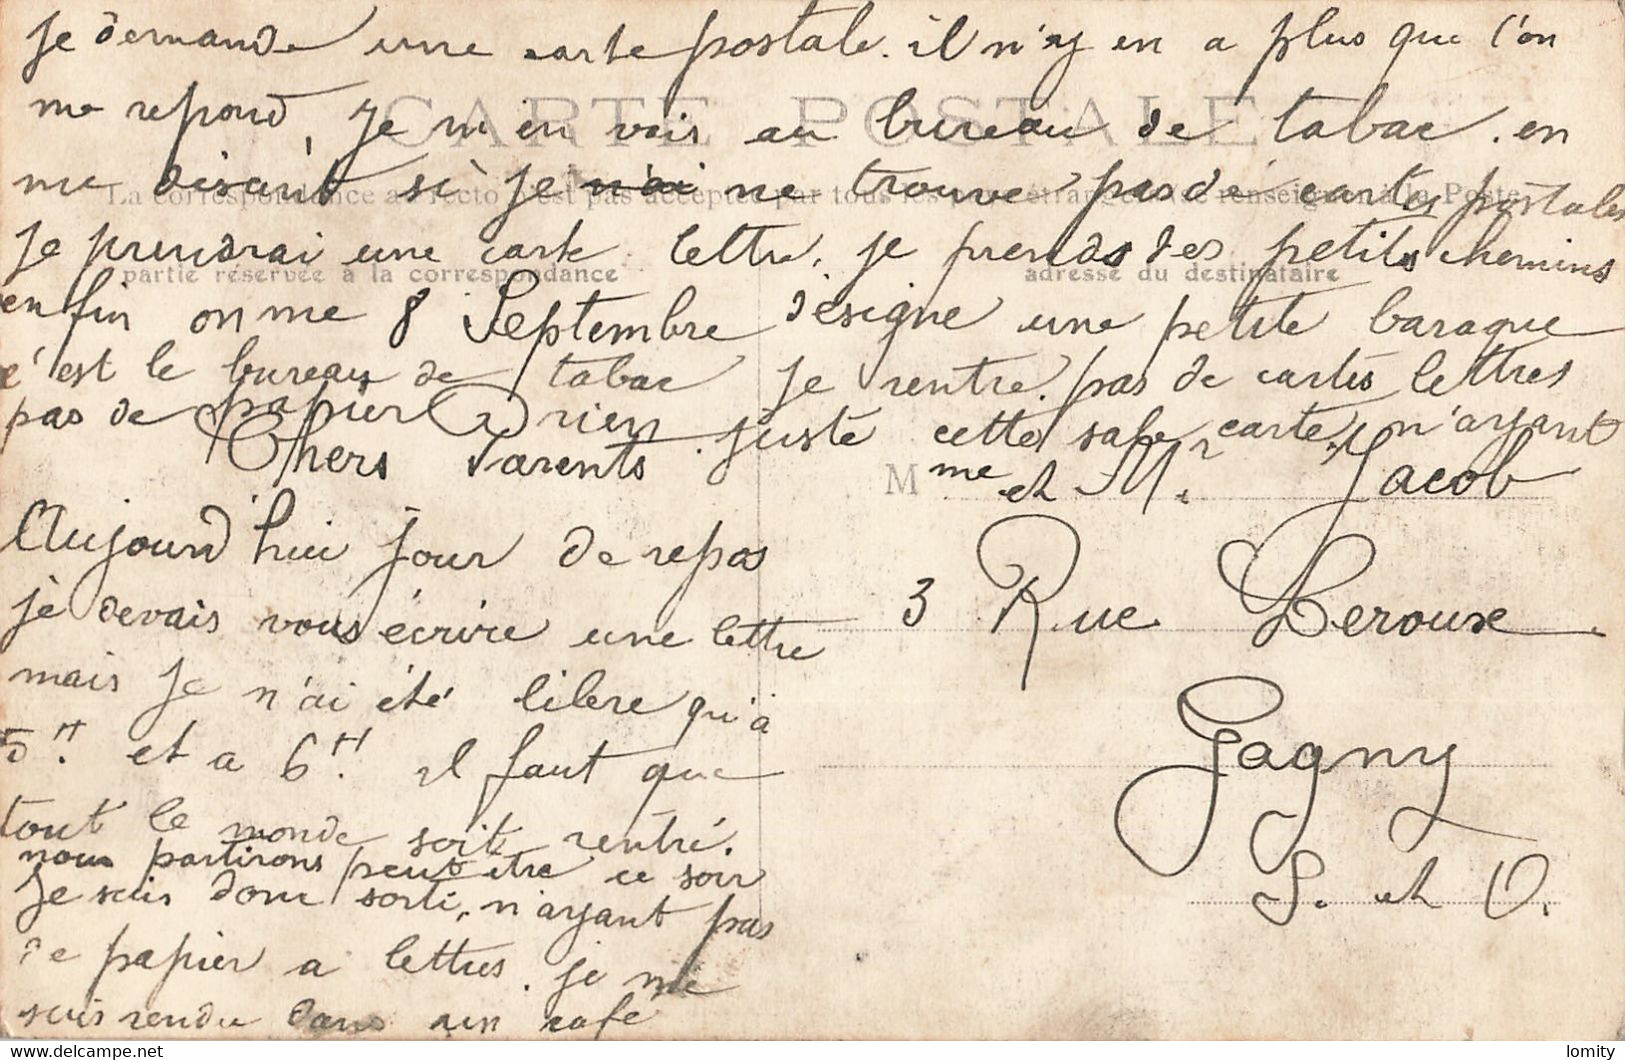 je demande une carte postale. il n'y en a plus que l'on
me repond, je m'en vais au bureau de tabac. en
me disant si je n'ai ne trouve pas de cartes postales
je prendrai une carte lettre. je prends des petits chemins
enfin on me 8 Septembre désigne une petite baraque
c'est le bureau de tabac je rentre. pas de cartes lettres
pas de papier rien juste cette sale carte, n'ayant
CARTE POSTALE
La correspondance au recto n'est pas acceptée par tous les pays étrangers. Se renseigner à la Poste
partie réservée à la correspondance
adresse du destinataire
Chers Parents.
Aujourd'hui jour de repos
je devais vous écrire une lettre
mais je n'ai été libere qu'à
5H. et a 6H. il faut que
tout le monde soit rentré.
nous partirons peut etre ce soir
Je suis donc sorti, n'ayant pas
de papier a lettres. je me
suis rendu dans un café
Mme et Mr. Jacob
3 Rue Leroux
Gagny
S. et O.
https://www.delcampe.net
lomity